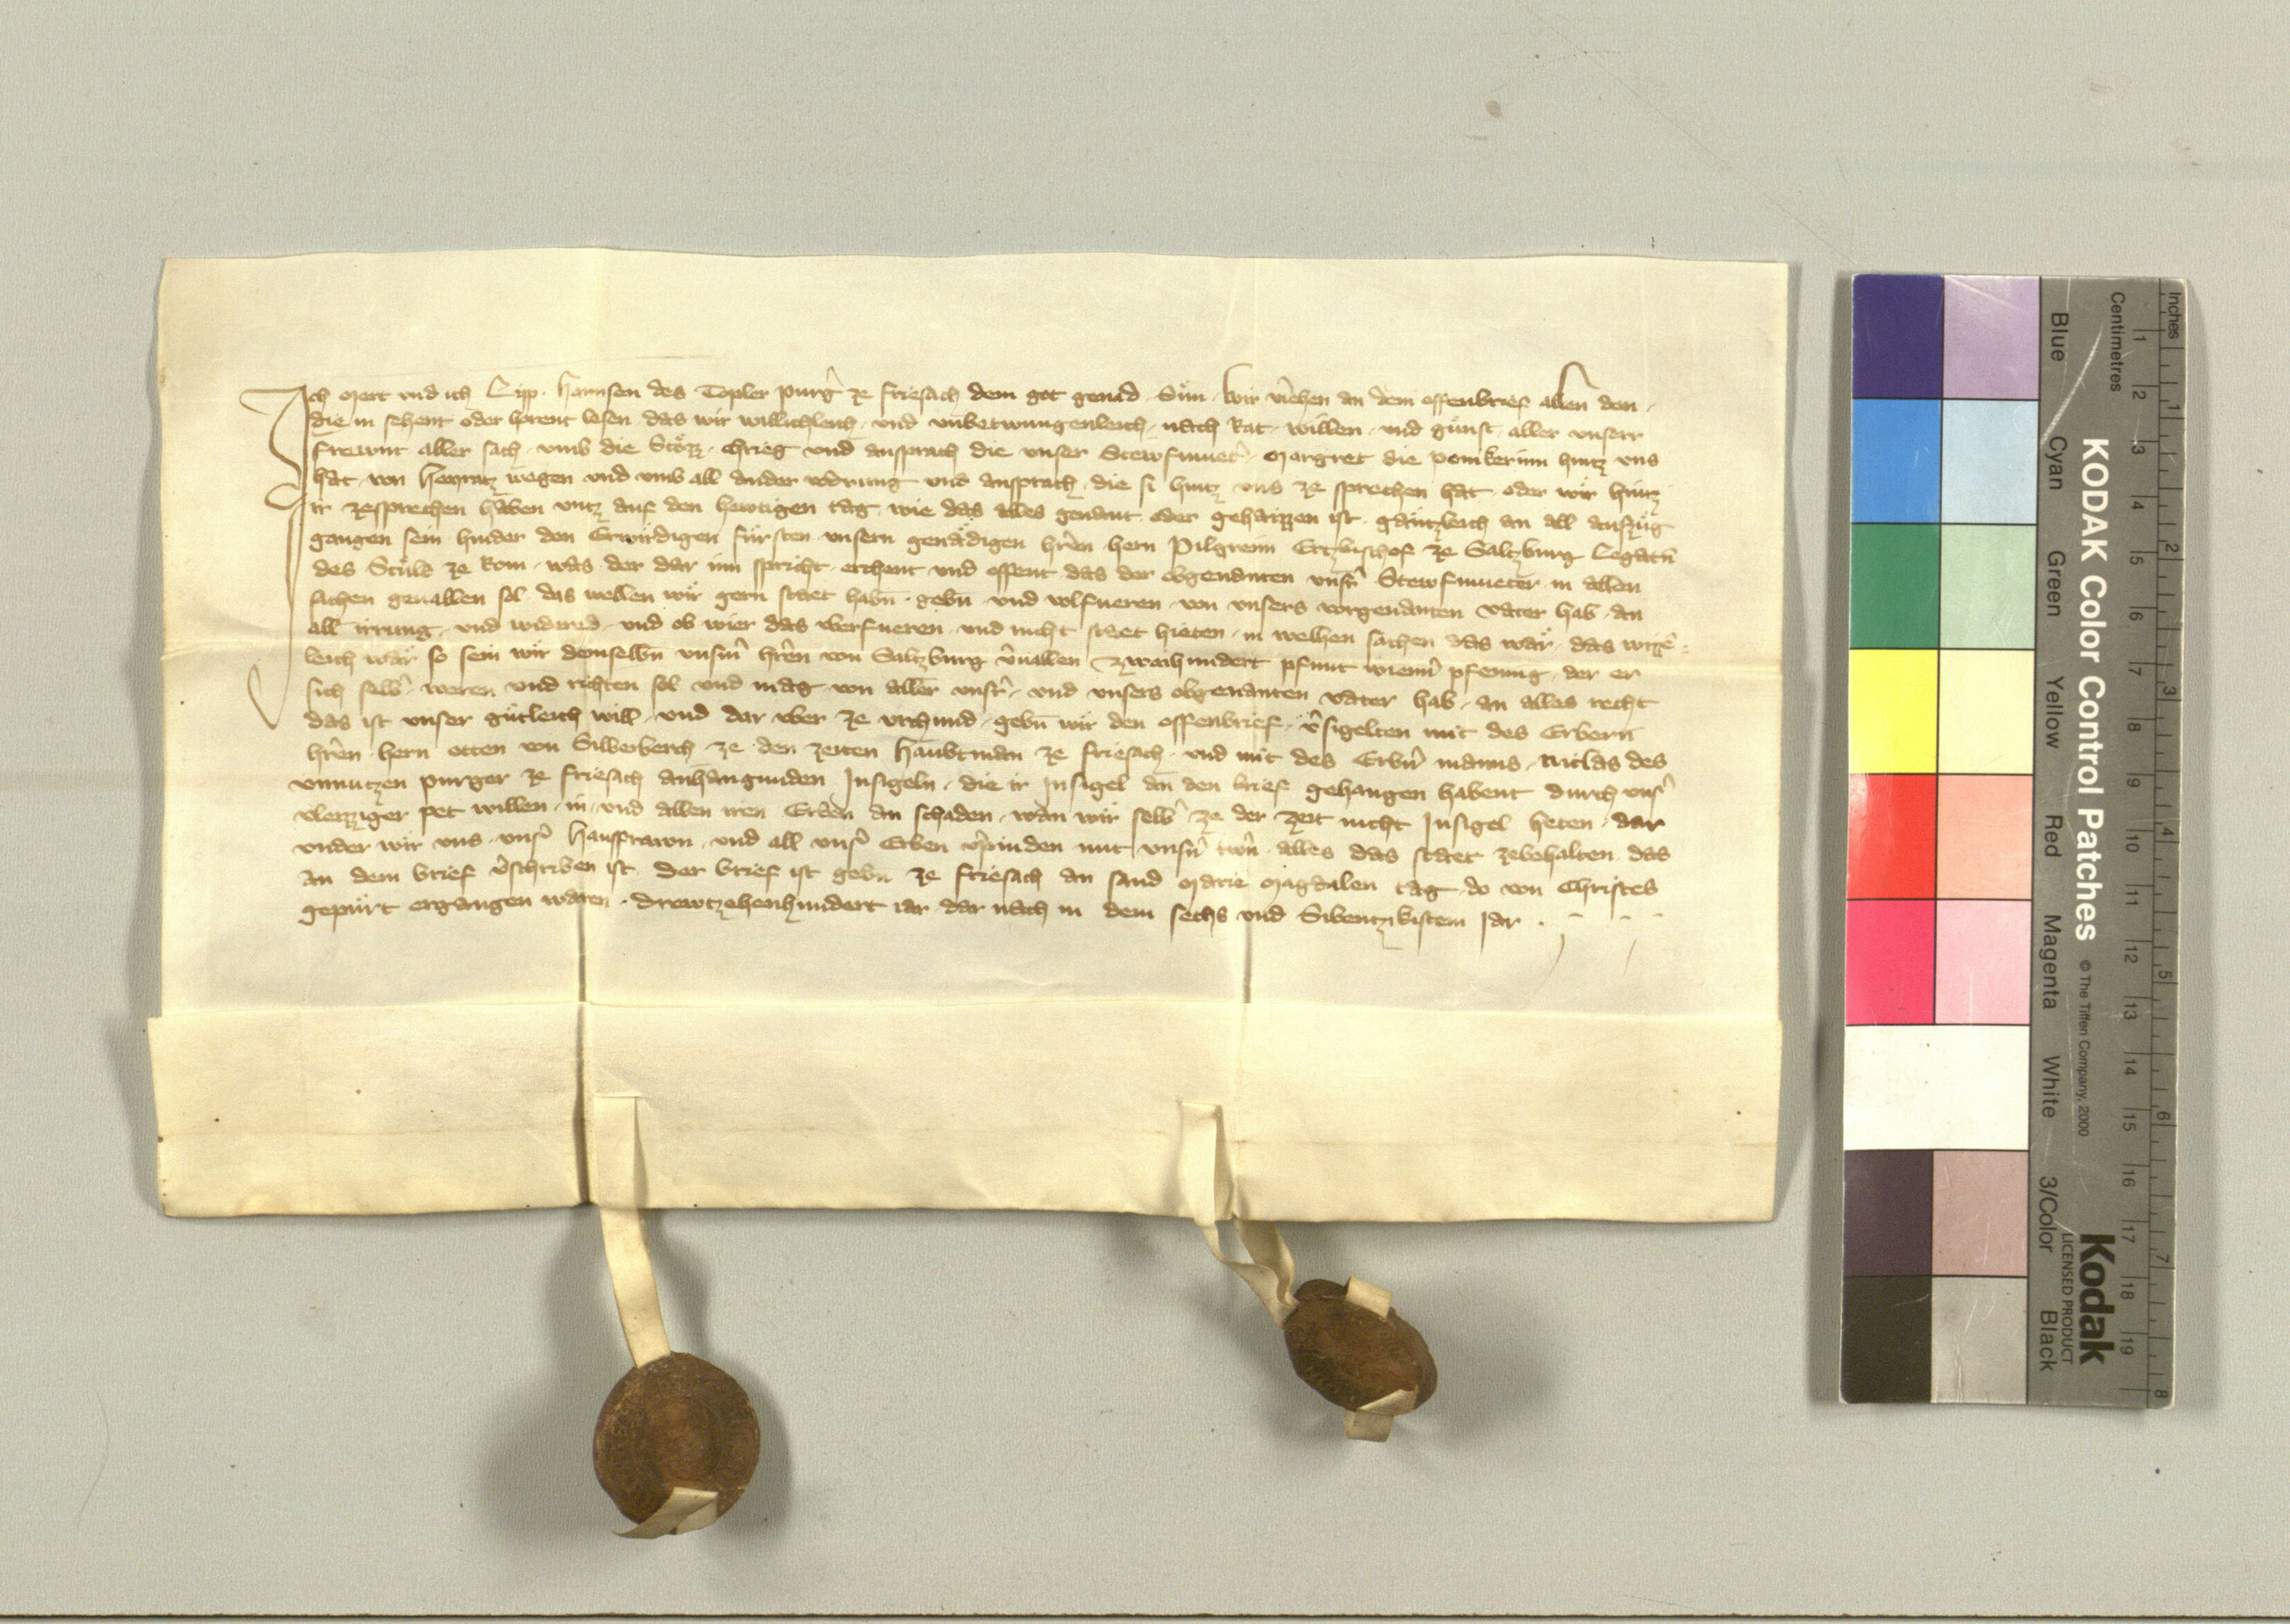 Ich Mert und ich Lipp Hannsen des Topler purg̾ ze Friesach dem got genad Sün Wir v̾iehen an dem offenbrief allen den
die in sehent oder horent lesen das wir willichleich und unbetwungenleich nach Rat willen und gunst aller unserr
frewnt aller sach umb die Stözz chrieg und ansprach die unser Stewfmuet̾ Margret die hintz uns
hat von Heyratz wegen und umb all ander vodrung und ansprach die si hintz uns ze sprechen hat oder wir hintz
ir zesprechen haben untz auf den hewtigen tag wie das alles genant oder gehaizzen ist gäntzleich an all auszug
gangen sein hinder den Erwirdigen fürsten unsern genädigen hr̄en hern Pilgreim Ertzbischof ze Saltzburg Legatn̄
des Stuls ze Rom was der dar inn spricht erchent und offent das der obgenanten unsr̾ Stewfmueter in allen
sachen geuallen sol das wellen wir gern staet habn̄ gebn̄ und volfueren von unsers vorgenanten vater hab an
all irrung und widered und ob wier das uberfueren und nicht staet hieten in welhen sachen das wär das
leich wär so sein wir demselbn̄ unsm̾ hr̄en von Saltzburg v̾uallen Zwaihundert pfunt wienn̾ pfenning der er
sich selb̾ weren und richten sol und mag von aller unsr̾ und unsers obgenanten vater hab an alles recht
das ist unser gütleich will und dar uber ze urchund gebn̄ wir den offenbrief v̾sigelten mit des Erbern
hr̄en hern Otten von Silberberch ze den zeiten Haubtman ze Friesach und mit des Erbn̾ manns Niclas des
unnutzen purger ze Friesach anhangunden Insigeln die ir Insigel an den brief gehangen habent durch uns̾
vleizziger pet willen in und allen iren Erben an schaden wan wir selb̾ ze der zeit nicht Insigel heten dar
under wir uns uns̾ hausprawn und all uns̾ Erben v̾pinden mit unsn̾ trwn̄ alles das staet zebehalten das
an dem brief v̾schriben ist Der brief ist gebn̄ ze Friesach an sand Marie Magdalen tag do von Christes
gepürt ergangen waren drewtzehenhundert iar dar nach in dem sechs und Sibentzikistem Jar
KODAK Color Control Patches
© The Tiffen Company, 2000
Kodak
LICENSED PRODUCT
Blue Cyan Green Yellow Red Magenta White 3/Color Black
Centimetres 1 2 3 4 5 6 7 8 9 10 11 12 13 14 15 16 17 18 19
Inches 1 2 3 4 5 6 7 8